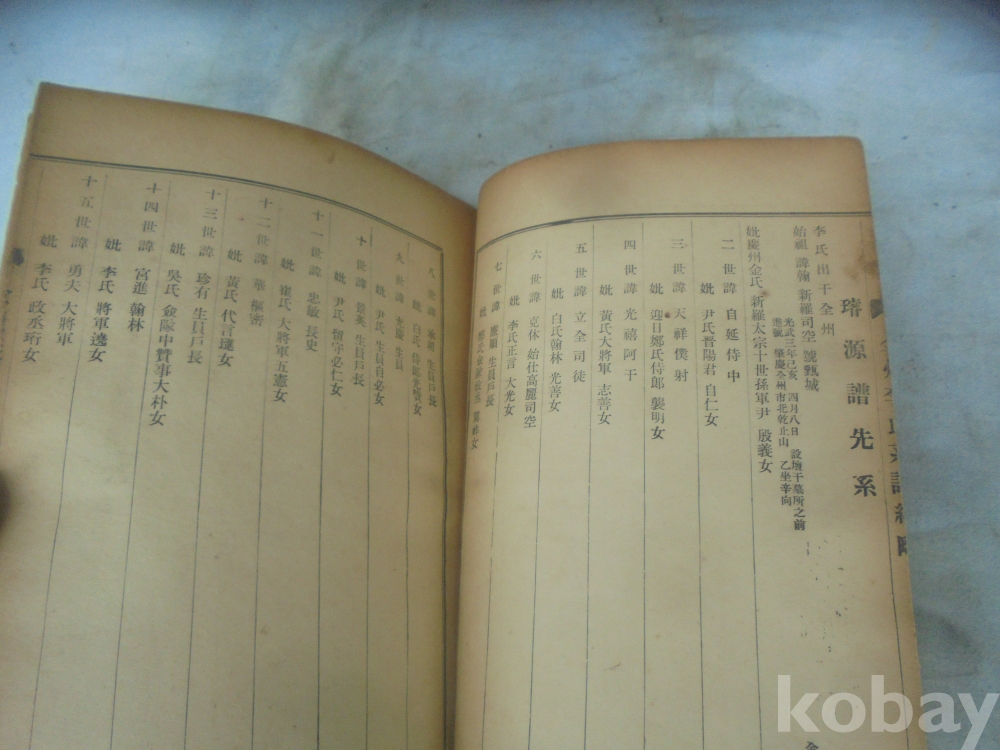 璿源譜先系
李氏出于全州
始祖 諱翰 新羅司空 號甄城
光武三年己亥 四月八日 設壇于墓所之前
進號 肇慶 全州市北乾止山 乙坐辛向
妣慶州金氏 新羅太宗十世孫軍尹 殷義女
二世諱 自延 侍中
妣 尹氏晋陽君 自仁女
三世諱 天祥 僕射
妣 迎日鄭氏侍郎 襲明女
四世諱 光禧 阿干
妣 黃氏大將軍 志善女
五世諱 立全 司徒
妣 白氏翰林 光善女
六世諱 克休 始仕高麗司空
妣 李氏正言 大光女
七世諱 廉順 生員戶長
八世諱 生員戶長
妣 白氏 侍郎
九世諱 充慶 生員
妣 尹氏 生員自必女
十世諱 景英 生員戶長
妣 尹氏 留守必仁女
十一世諱 忠敏 長史
妣 崔氏 大將軍五憲女
十二世諱 華 樞密
妣 黃氏 代言瑾女
十三世諱 珍有 生員戶長
妣 吳氏 金隊中賛事大朴女
十四世諱 宮進 翰林
妣 李氏 將軍邊女
十五世諱 勇夫 大將軍
妣 李氏 政丞珩女
kobay